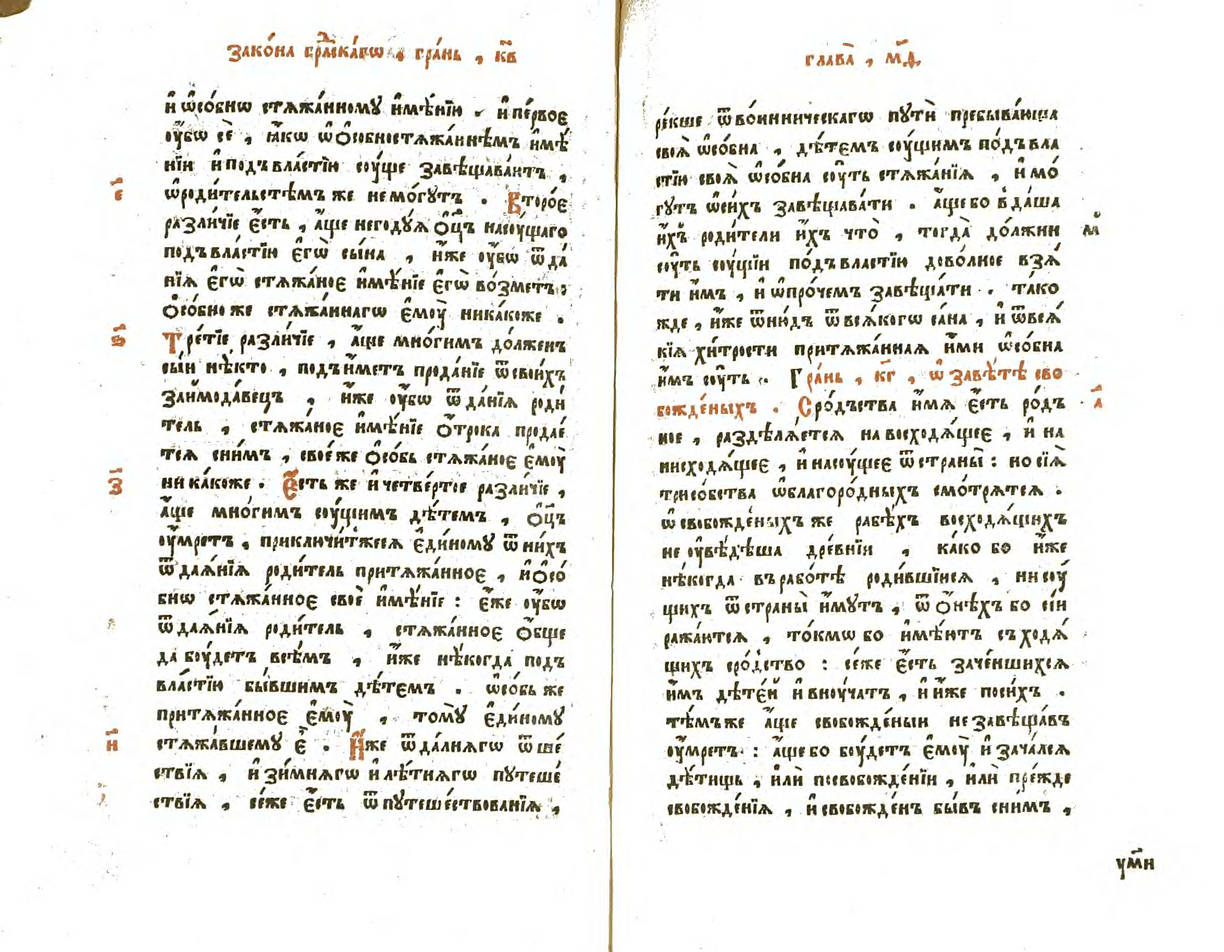 Зако́на гра́дскагѡ , гра́нь , к҃в
и҆ ѡ҆со́бнѡ стѧжа́нному и҆мѣ́нїю . и҆ пе́рвоє
ᲂу҆́бѡ сѐ , ꙗ҆́кѡ ѡ҆ ѻ҆собностѧжа́ннѣмъ и҆мѣ́
нїи и҆ подъ вла́стїю сꙋ́ще завѣщава́ютъ ,
є҃
ѡ҆ роди́тельстѣмъ же не мо́гутъ . Второ́є
разли́чїе є҆́сть , а҆́ще негодꙋ́ѧ ѻ҆ц҃ъ на сꙋ́щаго
подъ вла́стїю є҆гѡ̀ сы́на , и҆́же ᲂу҆́бѡ ѿ да
нїѧ є҆гѡ̀ стѧжа́ноє и҆мѣ́нїе є҆гѡ̀ во́зметъ :
ѻ҆со́бно же стѧжа́ннагѡ є҆мꙋ̀ ника́коже .
ѕ҃
Тре́тїе разли́чїе , а҆́ще мно́гимъ до́лженъ
сы́и нѣ́кто , подъи́метъ прода́нїе ѿ свои́хъ
заимода́вецъ , и҆́же ᲂу҆́бѡ ѿ да́нїѧ роди
тель , стѧжа́ноє и҆мѣ́нїе ѻ҆́трока продае́
тсѧ с ни́мъ , своє́ же ѻ҆со́бь стѧжа́ноє є҆мꙋ̀
з҃
ника́коже . Є҆́сть же и҆ четве́ртоє разли́чїе ,
а҆́ще мно́гимъ сꙋ́щимъ дѣ́темъ , ѻ҆ц҃ъ
ᲂу҆́мретъ , приключи́тжесѧ є҆ди́ному ѿ ни́хъ
ѿ даѧ́нїѧ роди́тель притѧжа́нноє , и҆ ѻ҆со́
бнѡ стѧжа́нноє своѐ и҆мѣ́нїе : є҆́же ᲂу҆́бѡ
ѿ даѧ́нїѧ роди́тель , стѧжа́нноє ѻ҆́бще
да бꙋ́детъ всѣ́мъ , и҆́же нѣ́когда подъ
вла́стїю бы́вшимъ дѣ́темъ . ѡ҆со́бь же
притѧжа́нноє є҆мꙋ̀ , тому̀ є҆ди́ному
и҃
стѧжа́вшему є҆̀ . И҆́же ѿ да́лнѧгѡ ѿше́
ствїѧ , и҆ зи́мнѧгѡ и҆ лѣ́тнѧгѡ путеше́
ствїѧ , се́же є҆́сть ѿ путеше́ствованїѧ ,
глава̀ , м҃д
ре́кше ѿ во́инническагѡ путѝ пребыва́юща
своѧ̀ ѡ҆со́бна , дѣ́темъ сꙋ́щимъ по́дъ вла
стїю своѧ̀ ѡ҆со́бна сꙋ́ть стѧжа́нїѧ , и҆ мо́
гутъ ѡ҆ си́хъ завѣщава́ти . а҆́ще бо в да́ша
и҆̀хъ роди́тели и҆́хъ что̀ , тогда̀ до́лжни
сꙋ́ть сꙋ́щїи по́дъ вла́стїю дово́лное взѧ́
ти и҆̀мъ , и҆ ѡ҆ про́чемъ завѣща́ти . та́ко
жде , и҆́же ѿню́дъ ѿ всѧ́когѡ са́на , и҆ ѿ всѧ́
кїѧ хи́трости притѧжа́ннаѧ и҆́ми ѡ҆со́бна
и҆̀мъ сꙋ́ть . Гра́нь , к҃г , ѡ҆ завѣ́тѣ сво
а҃
божде́ныхъ . Сро́дъства и҆́мѧ є҆́сть ро́дъ
ноє , раздѣлѧ́єтсѧ на восходѧ́щеє , и҆ на
нисходѧ́щеє , и҆ на сꙋ́щеє ѿ страны̀ : но сїѧ̀
трисо́бства ѡ҆ благоро́дныхъ смо́трѧтсѧ .
ѡ҆ свобожде́ныхъ же рабѣ́хъ восходѧ́щихъ
не ᲂу҆вѣ́дѣша дре́внїи , ка́ко бо и҆́же
нѣ́когда въ рабо́тѣ роди́вшїисѧ , ни сꙋ́
щихъ ѿ страны̀ и҆́мутъ , ѿ ѻ҆нѣ́хъ бо сїи
ража́ютсѧ , то́кмѡ бо и҆мѣ́ютъ съходѧ́
щихъ сро́дство : се́же є҆́сть заче́ншихсѧ
и҆̀мъ дѣте́й и҆ внꙋ́чатъ , и҆ и҆́же по си́хъ .
тѣ́мъже а҆́ще свобожде́ныи не завѣща́въ
ᲂу҆́мретъ : а҆́ще бо бꙋ́детъ є҆мꙋ̀ и҆ зача́лсѧ
дѣ́тищь , и҆лѝ по свобожде́нїи , и҆лѝ пре́жде
свобожде́нїѧ , и҆ свобожде́нъ бы́въ с ни́мъ ,
ум҃и